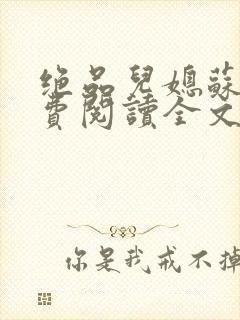 绝品兒媳蘇
費閱讀全文
你是我戒不掉